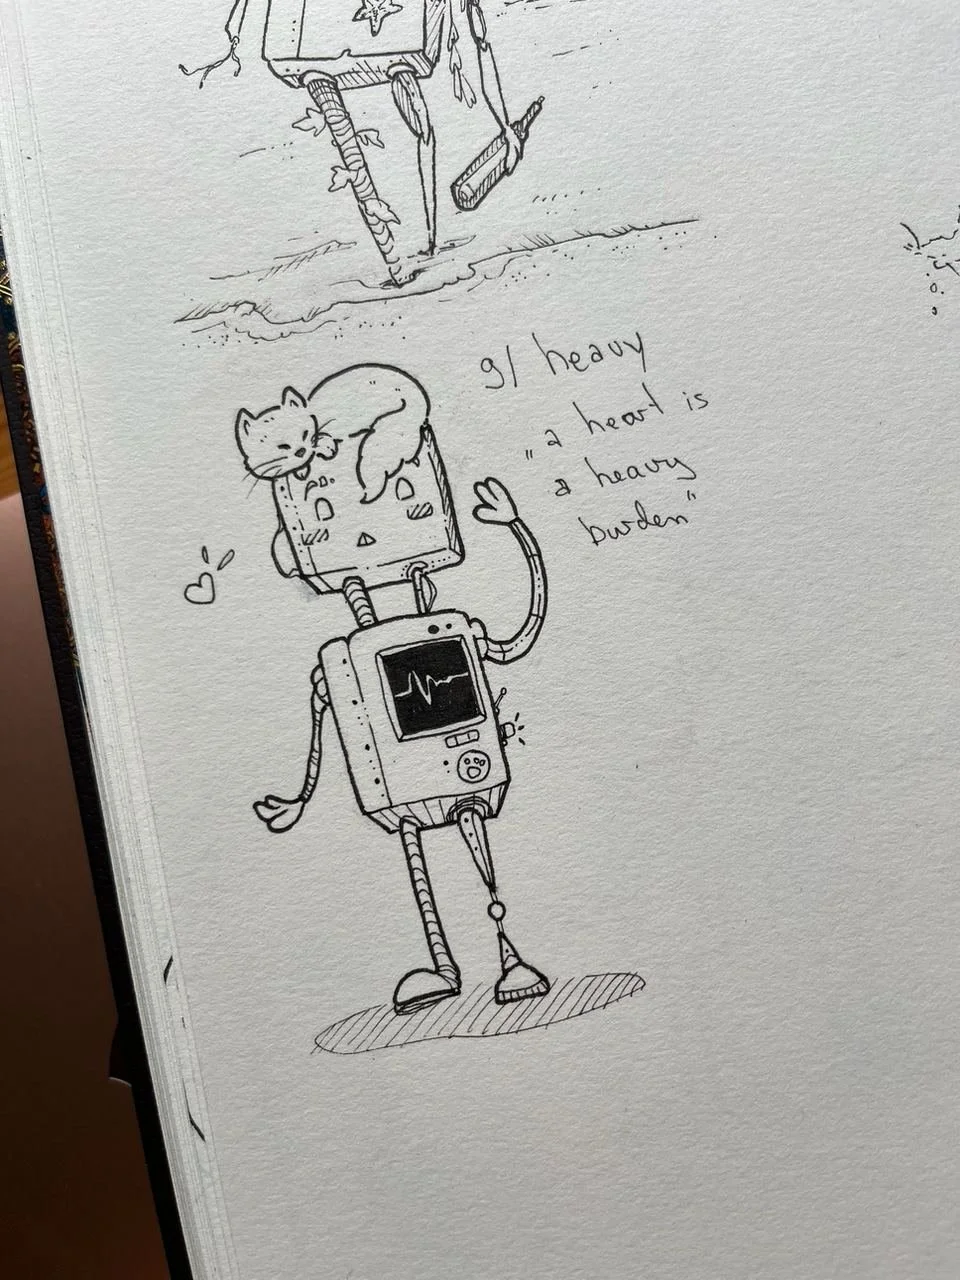 9/ heavy
"a heart is
a heavy
burden"